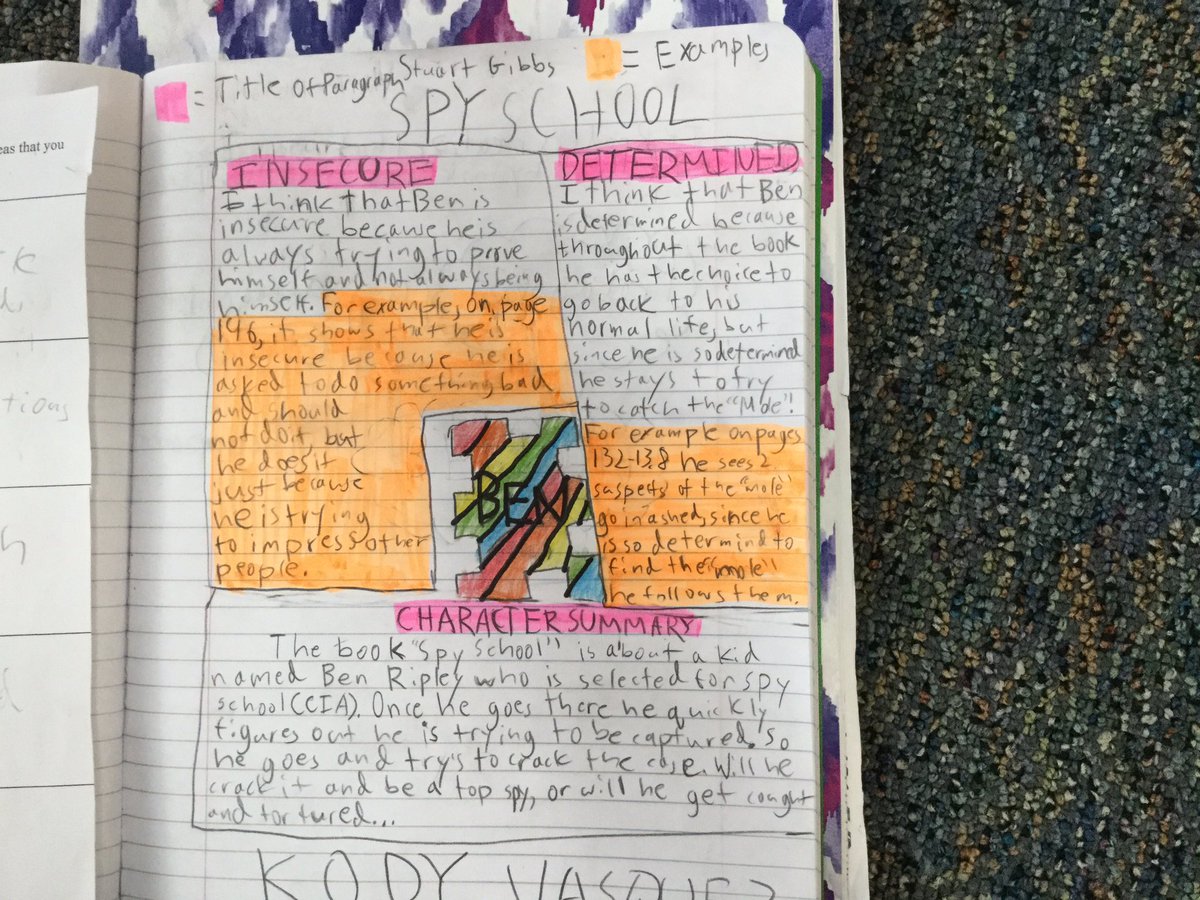 = Title of Paragraph
Stuart Gibbs
= Examples
SPY SCHOOL
eas that you
INSECURE
I think that Ben is
insecure because he is
always trying to prove
himself and not always being
himself. For example, on page
196, it shows that he is
insecure because he is
asked to do something bad
and should
not do it, but
he does it
just because
he is trying
to impress other
people.
DETERMINED
I think that Ben
is determined because
throughout the book
he has the choice to
go back to his
normal life, but
since he is so determined
he stays to try
to catch the "Mole".
For example on pages
132-138 he sees 2
suspects of the "mole"
go in a shed, since he
is so determind to
find the "mole"
he follows them.
BEN
CHARACTER SUMMARY
The book "Spy School" is about a kid
named Ben Ripley who is selected for spy
school (CIA). Once he goes there he quickly
figures out he is trying to be captured. So
he goes and try's to crack the case. Will he
crack it and be a top spy, or will he get caught
and tortured...
KODY VASQUEZ